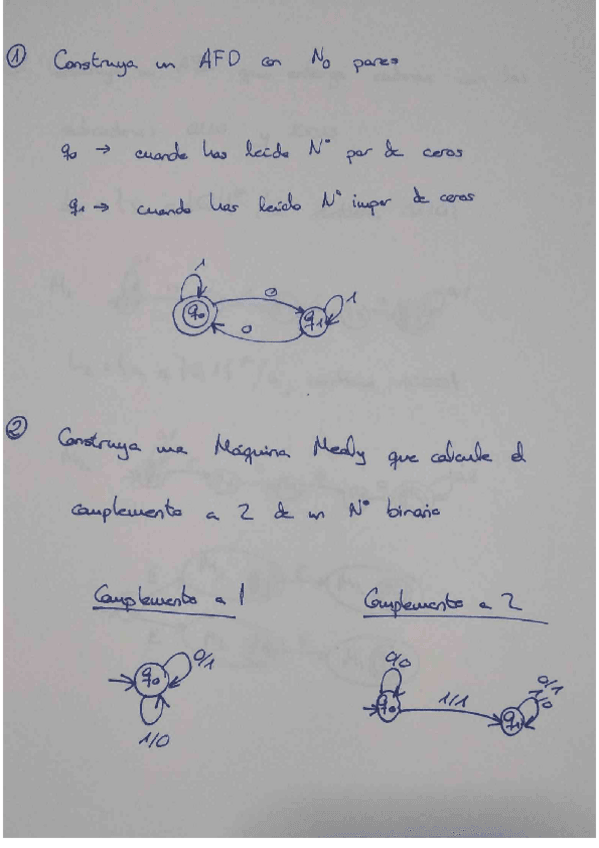 ① Construya un AFD con N₀ pares
q₀ → cuando has leído Nº par de ceros
q₁ → cuando has leído Nº impar de ceros
1
0
1
q₀
q₁
0
② Construya una Máquina Mealy que calcule el
complemento a 2 de un Nº binario
Complemento a 1
Complemento a 2
0/1
q₀
1/0
0/0
q₀
1/1
q₁
0/1
1/0